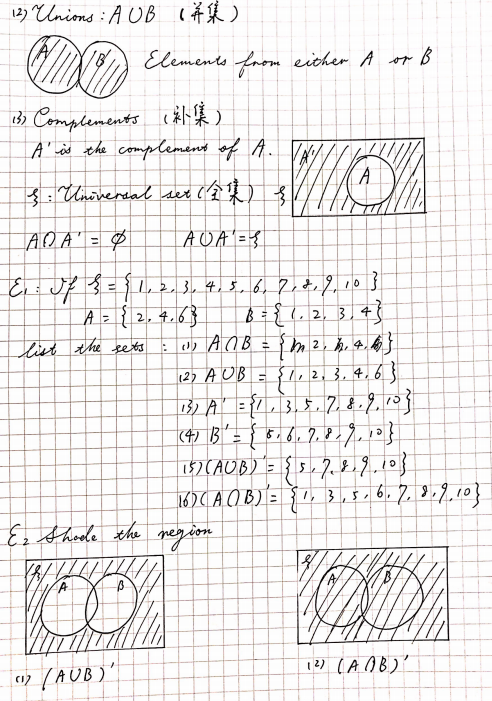 (2) Unions: A∪B (并集)
A B Elements from either A or B
(3) Complements (补集)
A' is the complement of A.
A' A
ξ: Universal set (全集) ξ
A∩A' = ϕ A∪A' = ξ
E₁: If ξ = {1, 2, 3, 4, 5, 6, 7, 8, 9, 10}
A = {2, 4, 6} B = {1, 2, 3, 4}
list the sets: (1) A∩B = {2, 4}
(2) A∪B = {1, 2, 3, 4, 6}
(3) A' = {1, 3, 5, 7, 8, 9, 10}
(4) B' = {5, 6, 7, 8, 9, 10}
(5) (A∪B)' = {5, 7, 8, 9, 10}
(6) (A∩B)' = {1, 3, 5, 6, 7, 8, 9, 10}
E₂ Shade the region
ξ A B ξ A B
(1) (A∪B)' (2) (A∩B)'